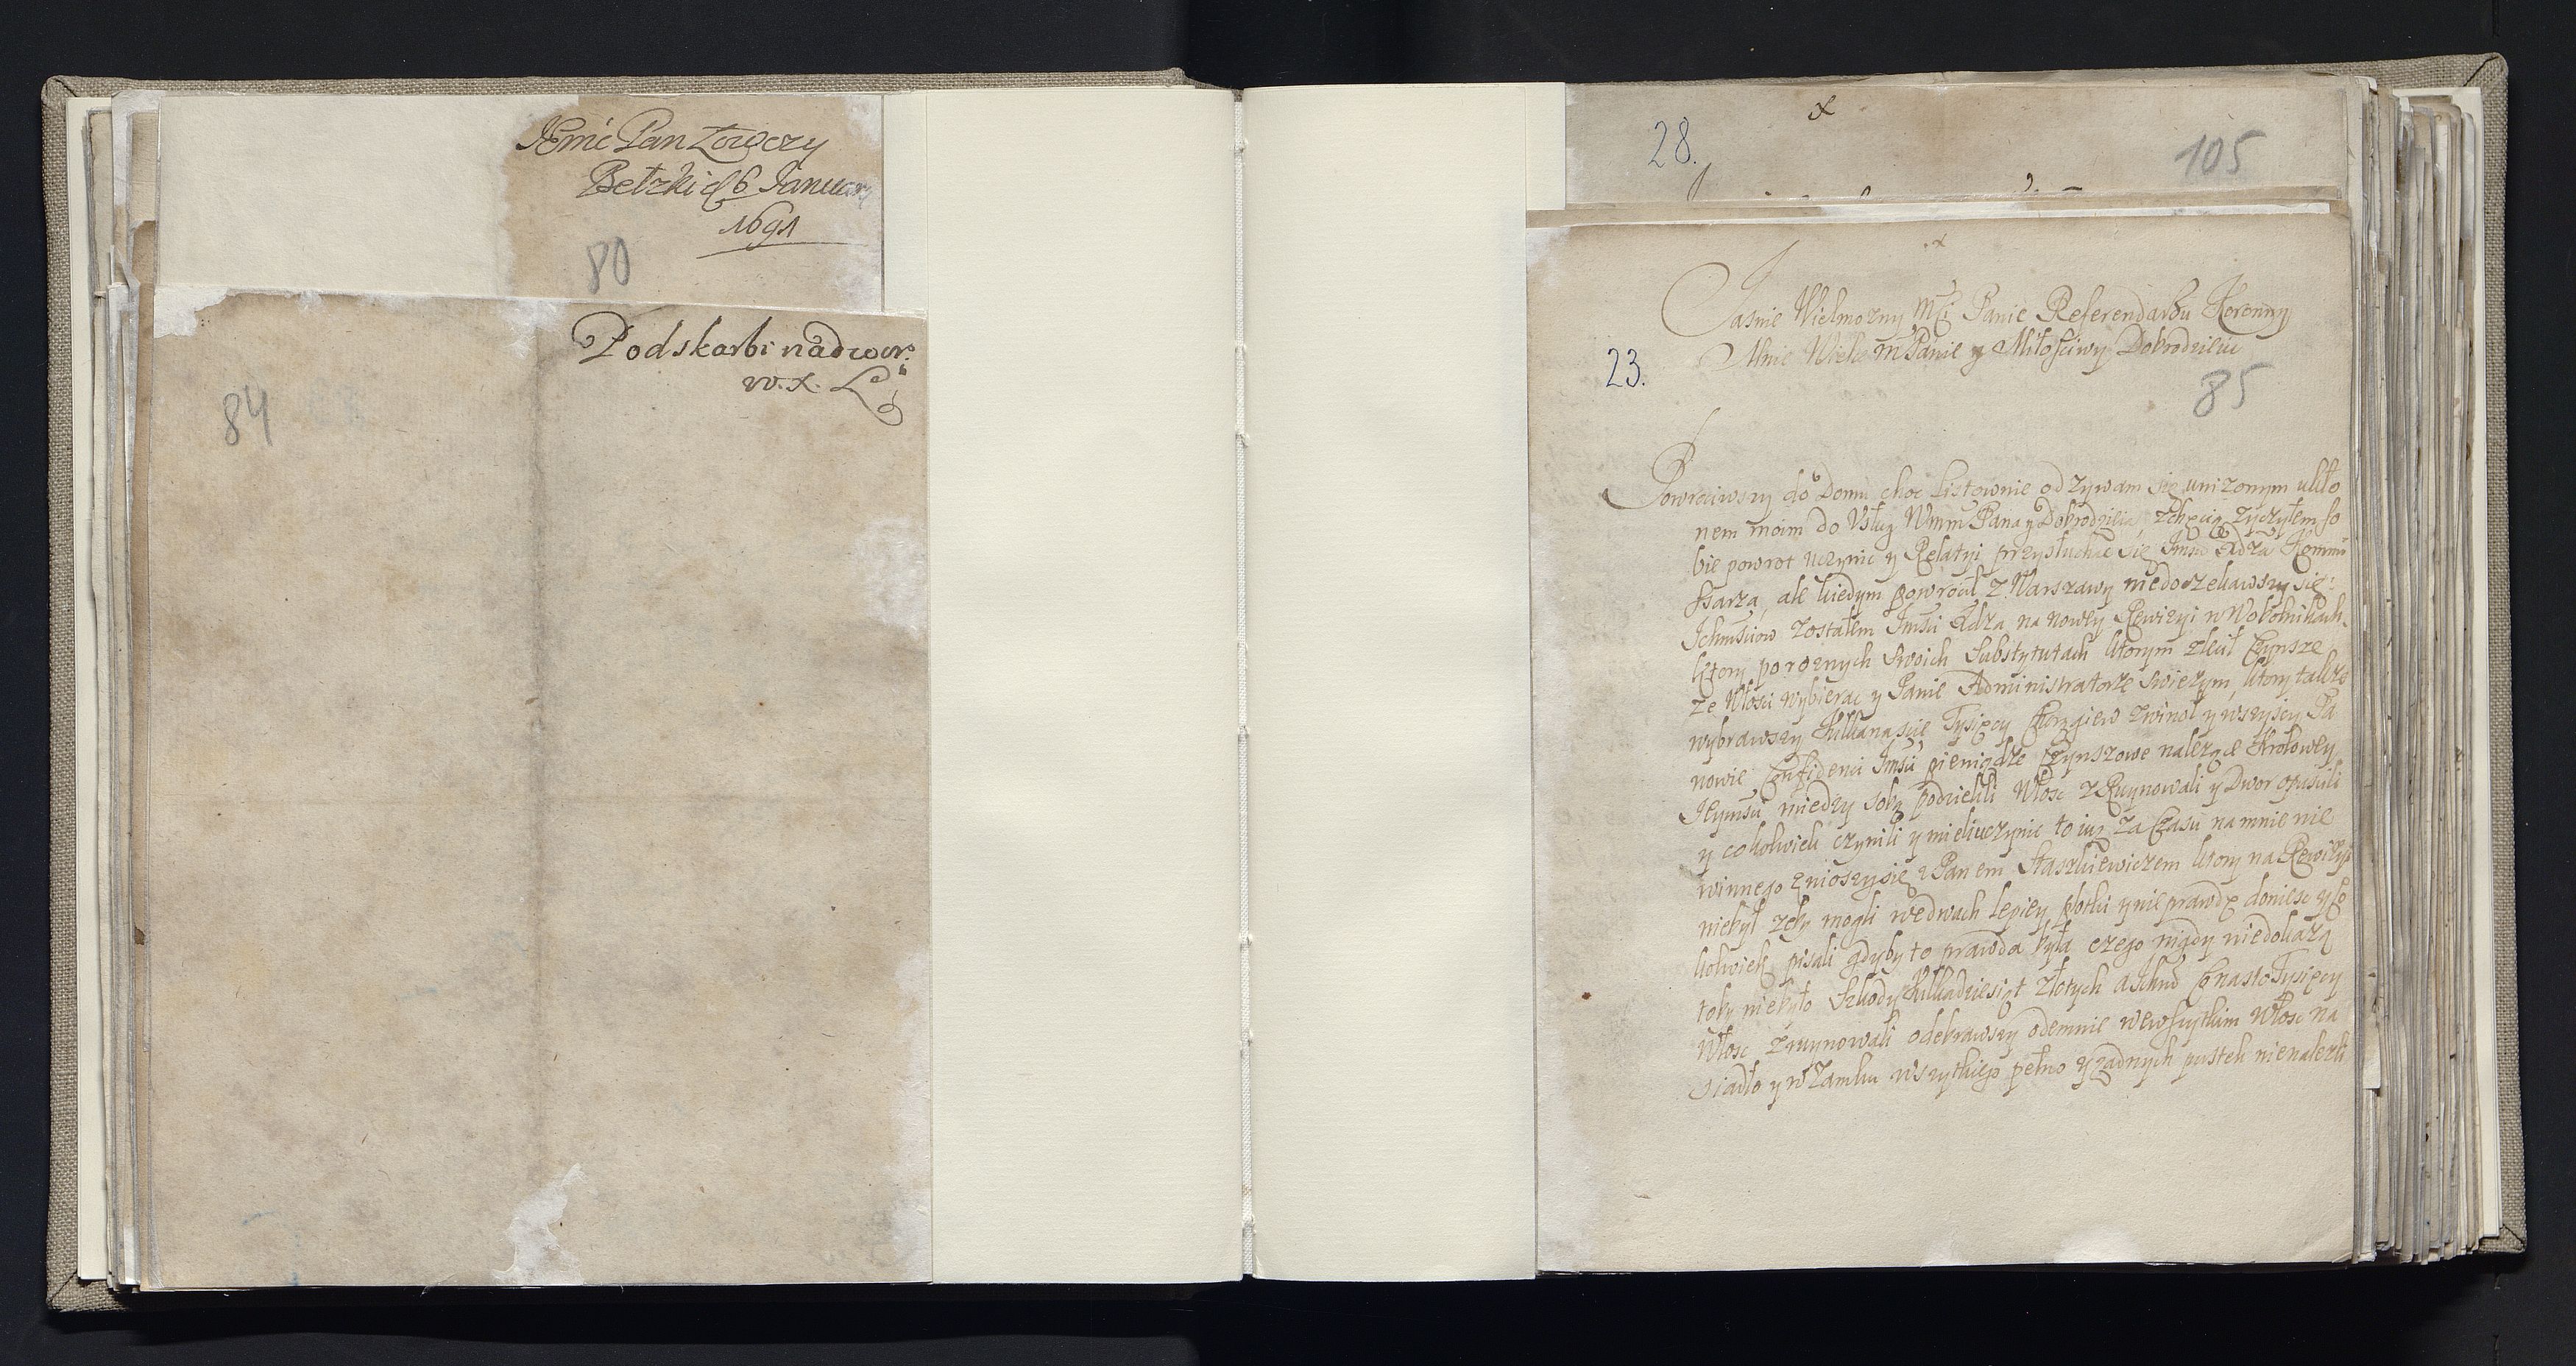 Jemć Pan Łowczy
Bełzki d 6 Januar
1691
80
Podskarbi nadwor:
w. x. L
84
x
28.
105
x
Jasnie Wielmozny Mści Panie Referendarzu Koronny
Mnie Wielce m Panie y Miłosciwy Dobrodzieiu
23.
85
Powrociwszy do Domu choc listownie odzywam się unizonym ukło
nem moim do Usług Wmm Pana y Dobrodzieia, zchęcią zyczyłem so
bie powrot uczynic y Relatyi przysłuchac się Jmsci Xdza Kommi
ssarza, ale kiedym powrocił z Warszawy niedoczekawszy się
Ichmsciow zostałem Jmsci Xdza na nowey Rewizyi w
ktory po roznych swoich Substytutach ktorym zlecił Czynsze
ze Włosci wybierac y Panie Administratorze swiezym, ktory takze
wybrawszy kilkanascie Tysięcy Chorągiew zwinoł y wszyscy Pa
nowie Confidenci Jmsci pieniądze Czynszowe nalezące Krolowey
Jeymsci miedzy sobą podzielili Włosc zRuynowali y Dwor opascili
y cokolwiek czynili y mieli uczynic to iuz za Czasu na mnie nie
winnego znioszy się z Panem Staszkiewiczem ktory na Rewizyi
niebył zeby mogli wedwuch lepiey plotki y nieprawdę doniesc y co
kolwiek pisali gdyby to prawda była czego nigdy niedokazą
toby niebyło Szkody kilkadziesiąt złotych a Ichmć Cznasto Tysięcy
Włosc zruynowali odebrawszy odemnie wewszytkim Włosc na
siadło y w Zamku wszytkiego pełno y zadnych pustek nienalezli